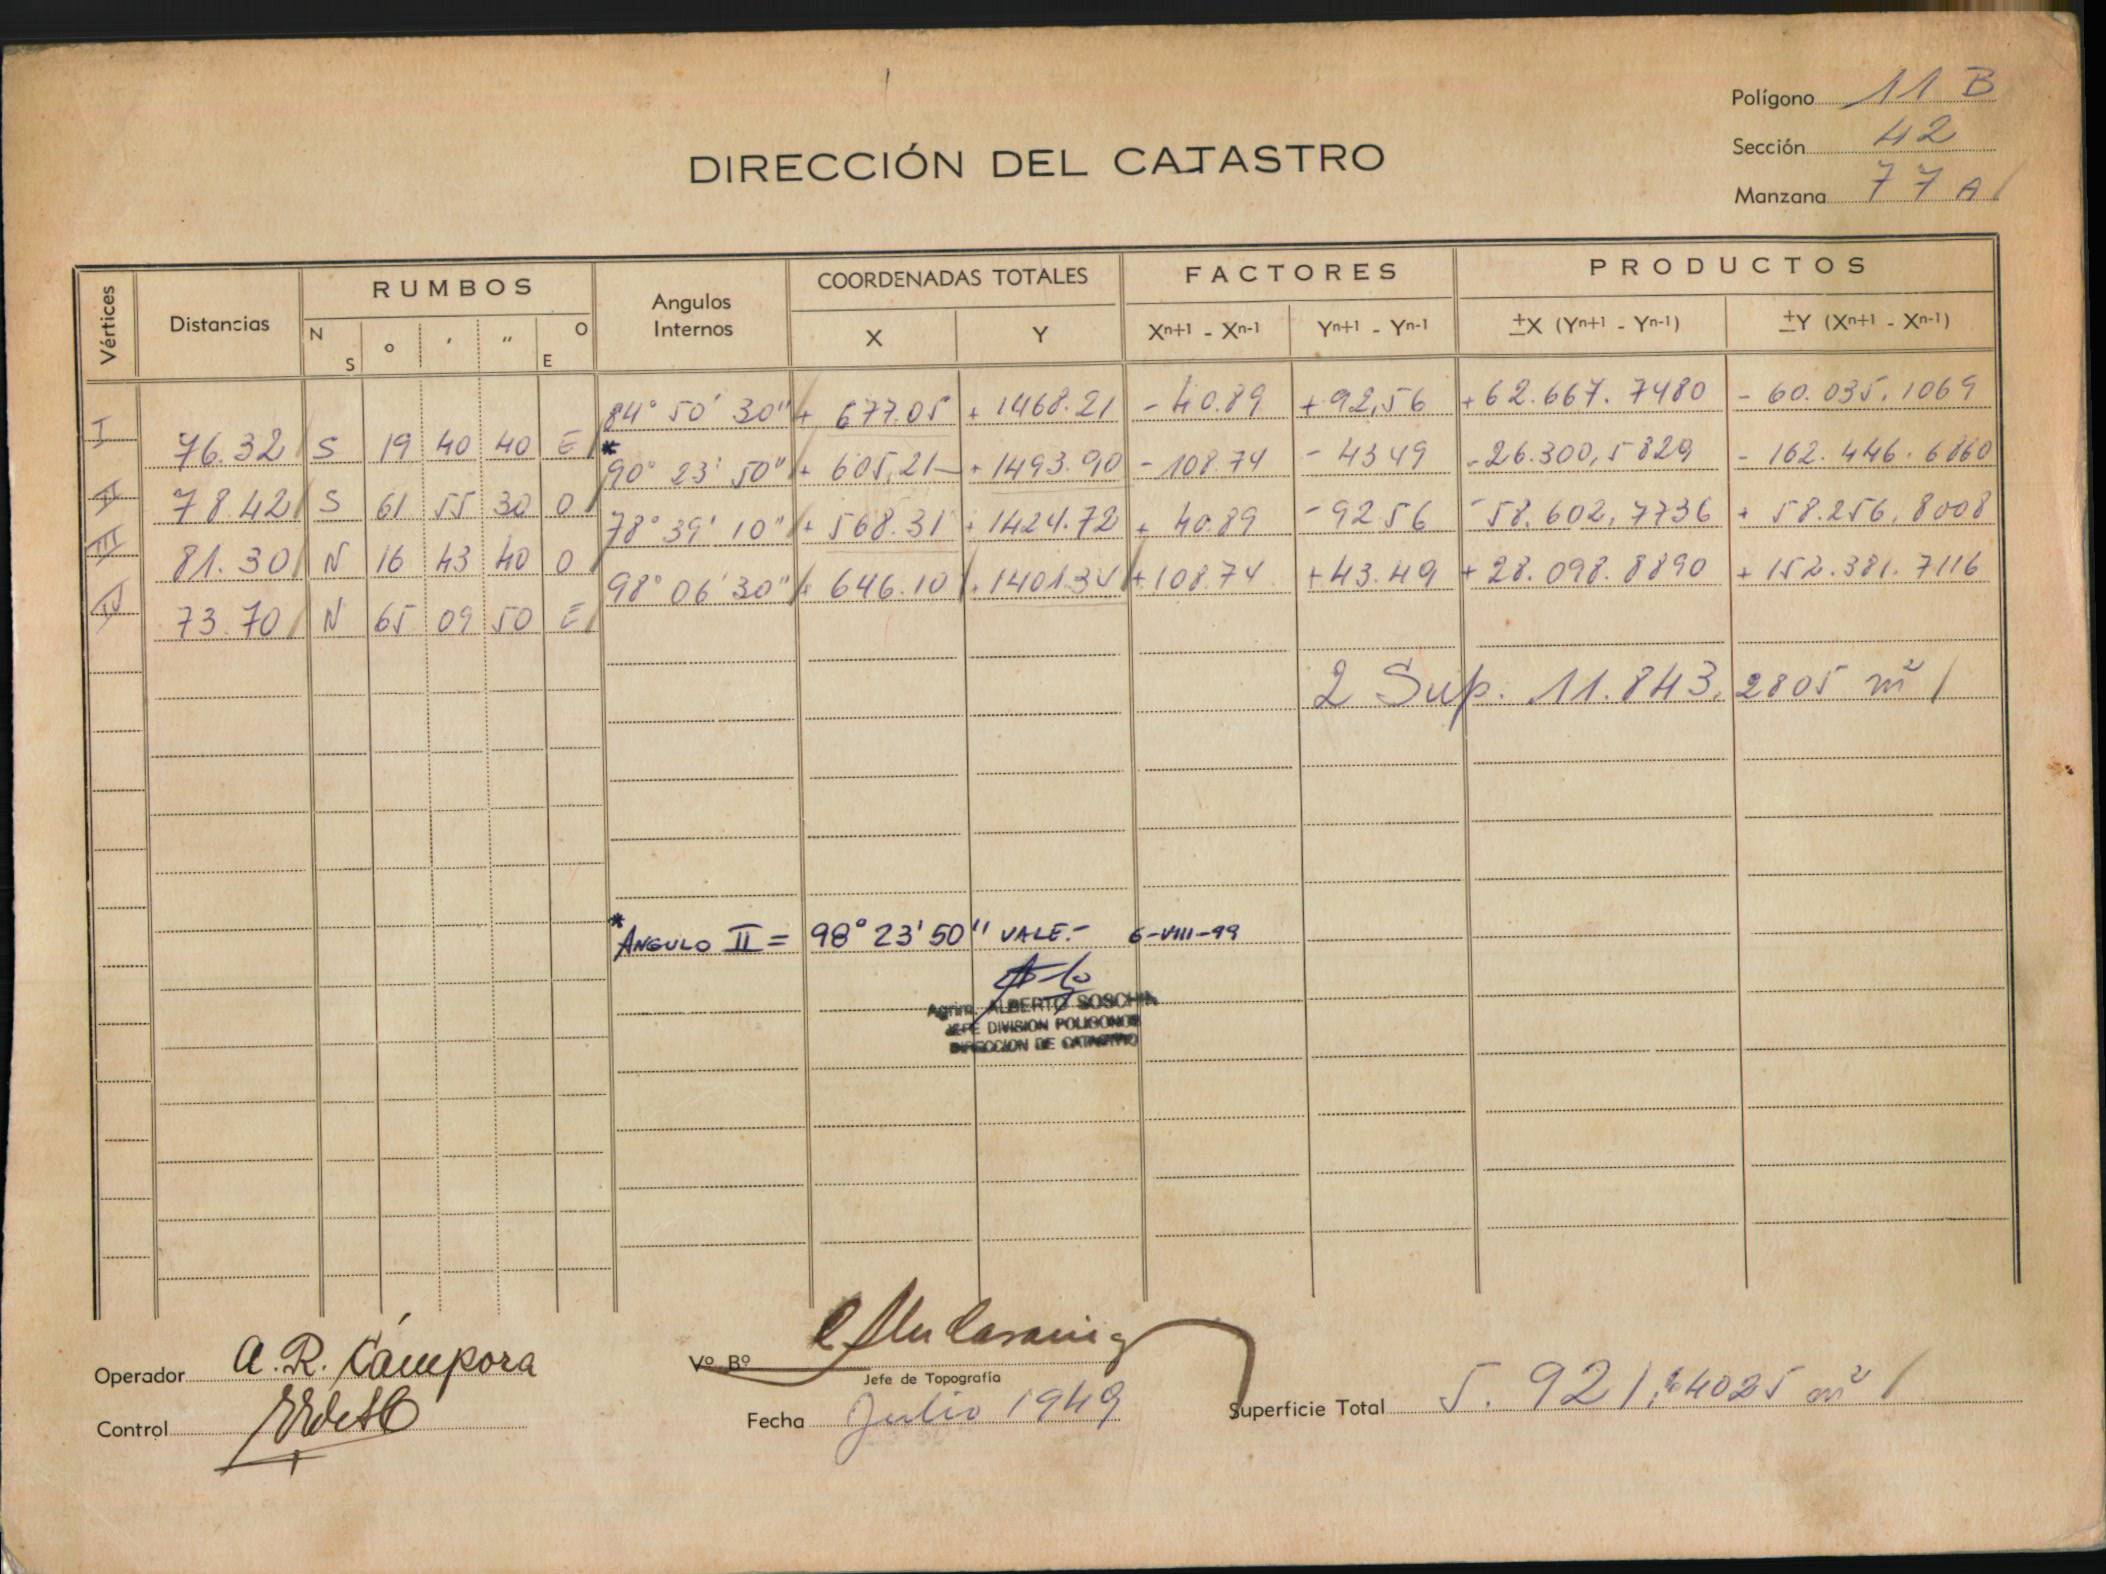 Polígono 11 B
Sección 42
Manzana 77 A
DIRECCIÓN DEL CATASTRO
Vértices Distancias RUMBOS Angulos Internos COORDENADAS TOTALES FACTORES PRODUCTOS
N S o ' '' O E X Y Xn+1 - Xn-1 Yn+1 - Yn-1 ±X (Yn+1 - Yn-1) ±Y (Xn+1 - Xn-1)
84° 50' 30" + 677.05 + 1468.21 - 40.89 + 92,56 + 62.667.7480 - 60.035.1069
I 76.32 S 19 40 40 E
* 90° 23' 50" + 605,21 + 1493.90 - 108.74 - 43 49 - 26.300,5829 - 162.446.6860
II 78 42 S 61 55 30 O
78° 39' 10" + 568.31 + 1424.72 + 40.89 - 92 56 - 58.602,7736 + 58.256,8008
III 81.30 N 16 43 40 O
98° 06' 30" + 646.10 + 1401.34 + 108.74 + 43.49 + 28.098.8890 + 152.381.7116
IV 73.70 N 65 09 50 E
2 Sup. 11.843,2805 m²
* ANGULO II = 98° 23' 50" VALE.- 6-VIII-99
Agrim. ALBERTO SOSCHIN
JEFE DIVISION POLIGONOS
DIRECCION DE CATASTRO
Operador A. R. Cámpora
Vº Bº
Jefe de Topografía
Control
Fecha Julio 1949
Superficie Total 5.921,64025 m²